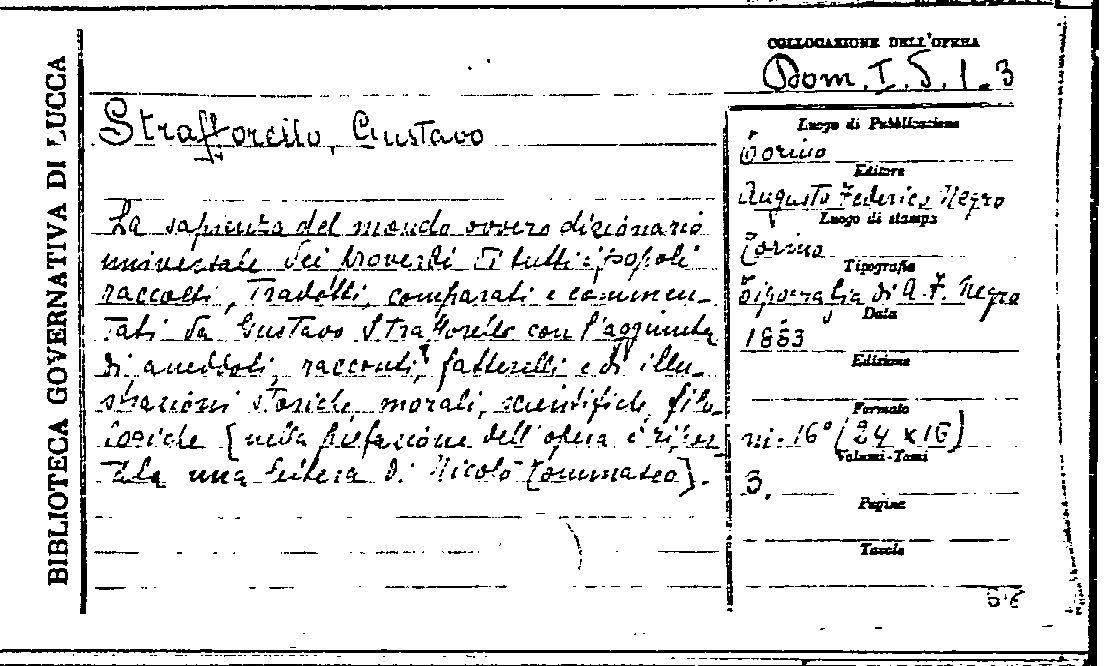 BIBLIOTECA GOVERNATIVA DI LUCCA
COLLOCAZIONE DELL'OPERA
Dom. I. 5. 1. 3
Strafforello, Gustavo
La sapienza del mondo ovvero dizionario
universale dei proverbi di tutti i popoli
raccolti, tradotti, comparati e commen-
tati da Gustavo Strafforello con l'aggiunta
di aneddoti, racconti, fatterelli e di illu-
strazioni storiche, morali, scientifiche, filo-
logiche [nella prefazione dell'opera è ripor-
tata una lettera di Nicolò Tommaseo].
Luogo di Pubblicazione
Torino
Editore
Augusto Federico Negro
Luogo di stampa
Torino
Tipografia
Tipografia di A. F. Negro
Data
1883
Edizione
Formato
in-16° (24 x 16)
Volumi-Tomi
3.
Pagine
Tavole